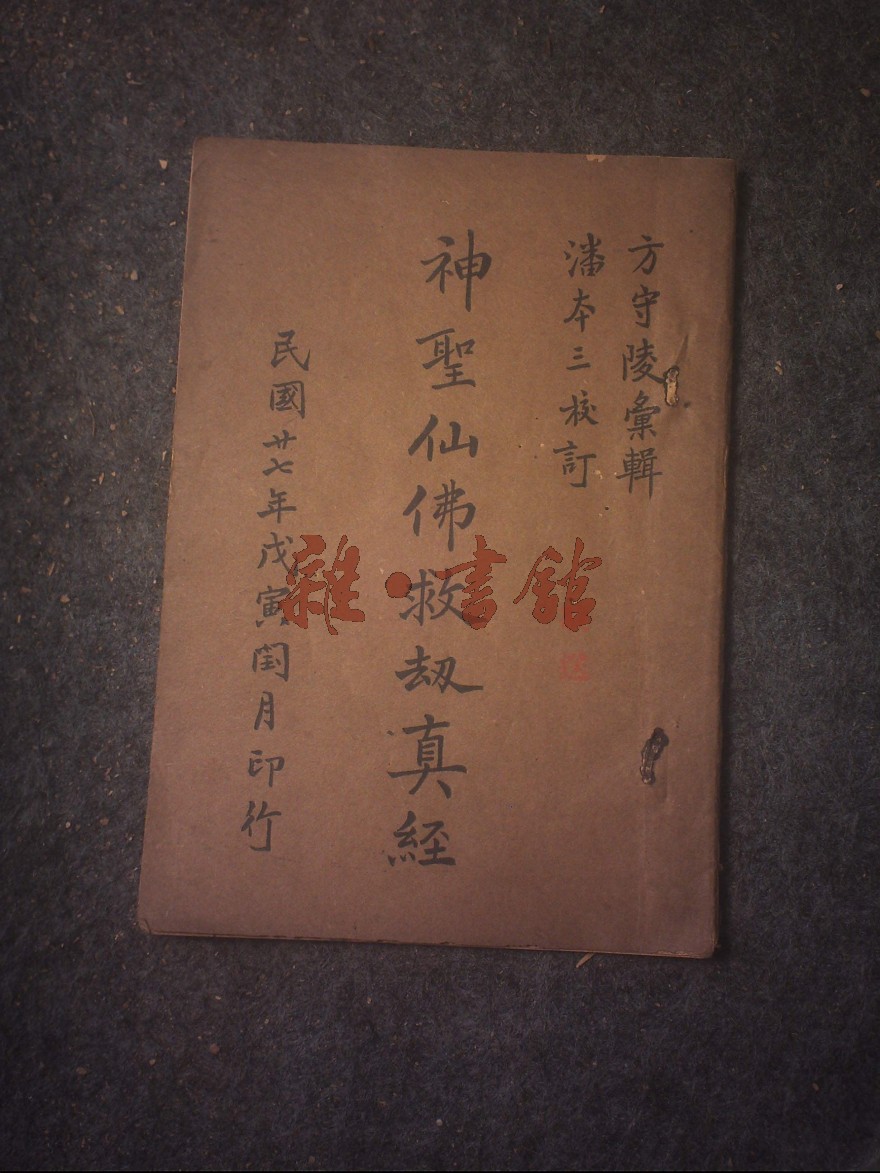 方守陵彙輯
潘本三校訂
神聖仙佛救劫真經
民國廿七年戊寅閏月印行
雜·書館